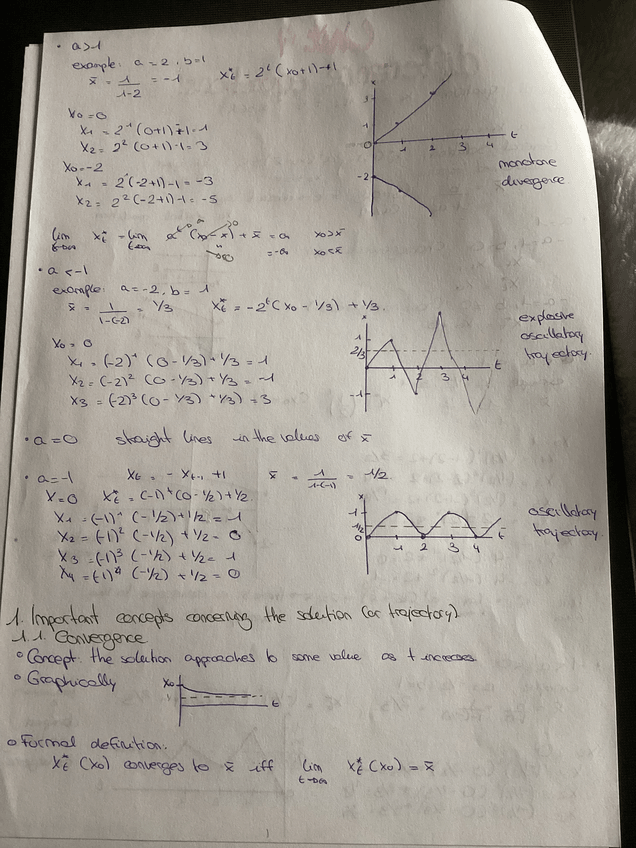 • a>1
example: a=2, b=1
x̄ = 1/(1-2) = -1    x*t = 2^t (x0+1)-1
x0=0
x1 = 2^1 (0+1)-1=1
x2 = 2^2 (0+1)-1=3
x0=-2
x1 = 2^1(-2+1)-1=-3
x2 = 2^2(-2+1)-1=-5
x
3
1
0
-2
1 2 3 4 t
monotone
divergence
lim t→∞ x*t = lim t→∞ a^t (x0-x̄) + x̄ = ∞    x0>x̄
= -∞    x0<x̄
• a<-1
example: a=-2, b=1
x̄ = 1/(1-(-2)) = 1/3    x*t = -2^t (x0-1/3) + 1/3
x0=0
x1 = (-2)^1 (0-1/3)+1/3=1
x2 = (-2)^2 (0-1/3)+1/3=-1
x3 = (-2)^3 (0-1/3)+1/3)=3
x
1
2/3
-1
1 2 3 4 t
explosive
oscillatory
trajectory.
• a=0    straight lines in the values of x̄
• a=-1    xt = -xt-1 +1    x̄ = 1/(1-(-1)) = 1/2.
X=0    x*t = (-1)^t (0-1/2)+1/2
x1 = (-1)^1 (-1/2)+1/2=1
x2 = (-1)^2 (-1/2)+1/2=0
x3 = (-1)^3 (-1/2)+1/2=1
x4 = (-1)^4 (-1/2)+1/2=0
x
1
1/2
0
1 2 3 4 t
oscillatory
trajectory.
1. Important concepts concerning the solution (or trajectory)
1.1. Convergence
o Concept: the solution approaches to some value as t increases
o Graphically
x0
t
o Formal definition:
x*t (x0) converges to x̄ iff lim t→∞ x*t (x0) = x̄